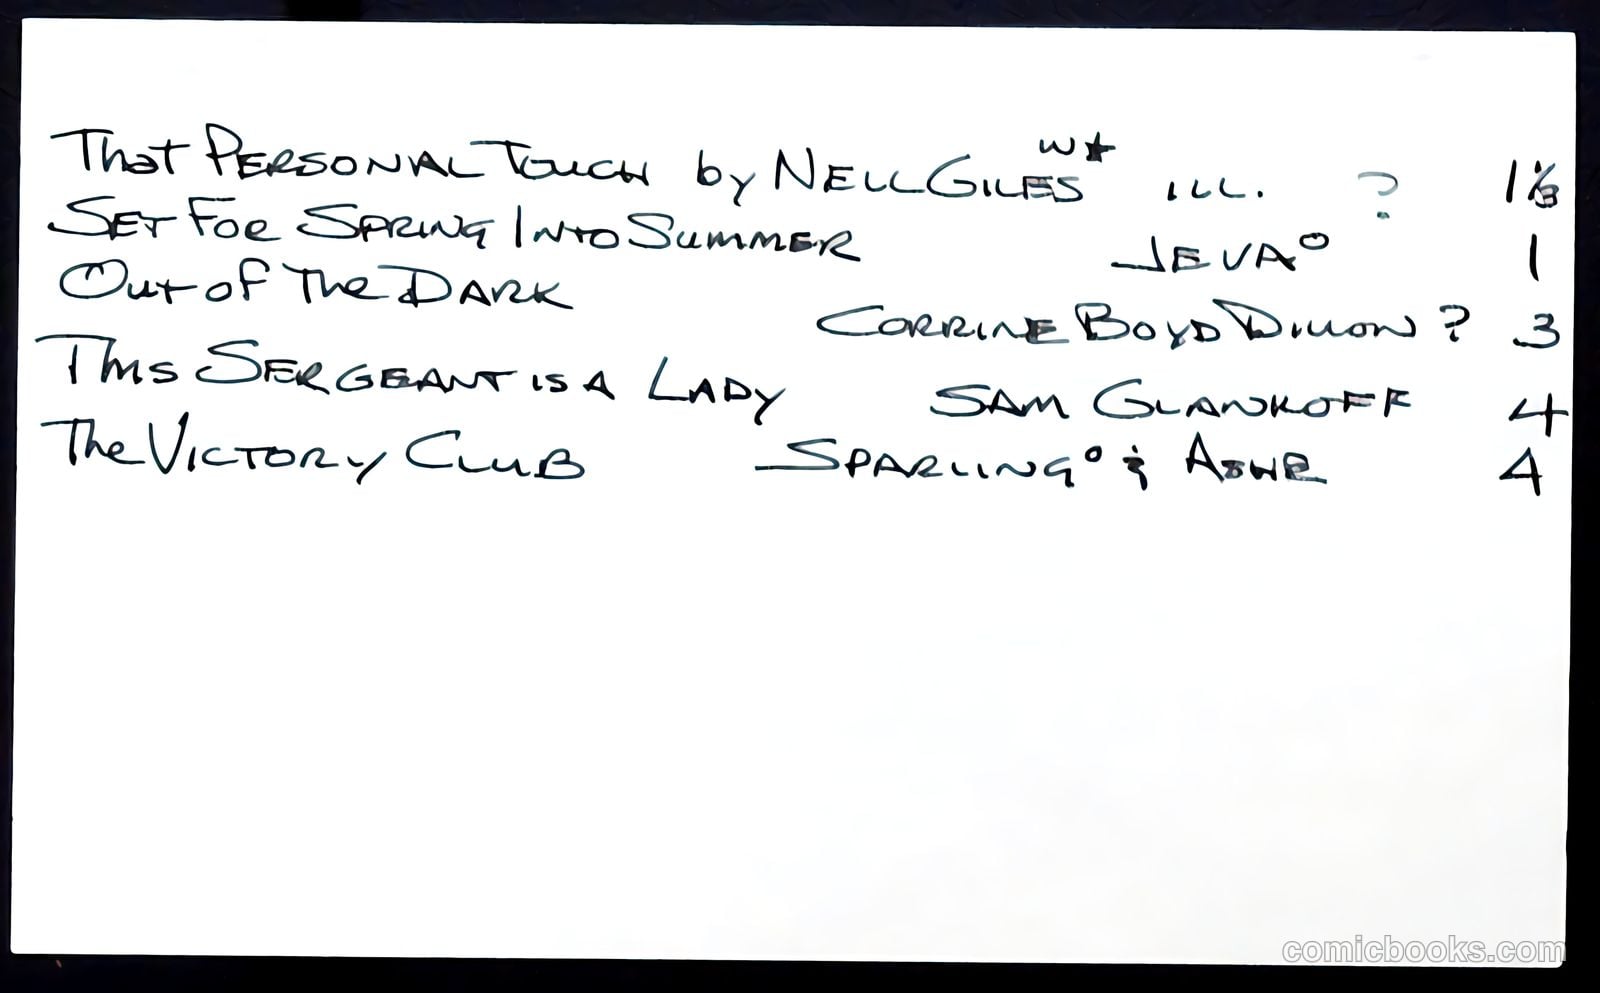 That Personal Touch by Nell Giles W★ ill. ?
Set For Spring Into Summer Jeva° 1
Out of The Dark Corrine Boyd Dillon ? 3
This Sergeant is a Lady Sam Glankoff 4
The Victory Club Sparling° & Ashe 4
comicbooks.com